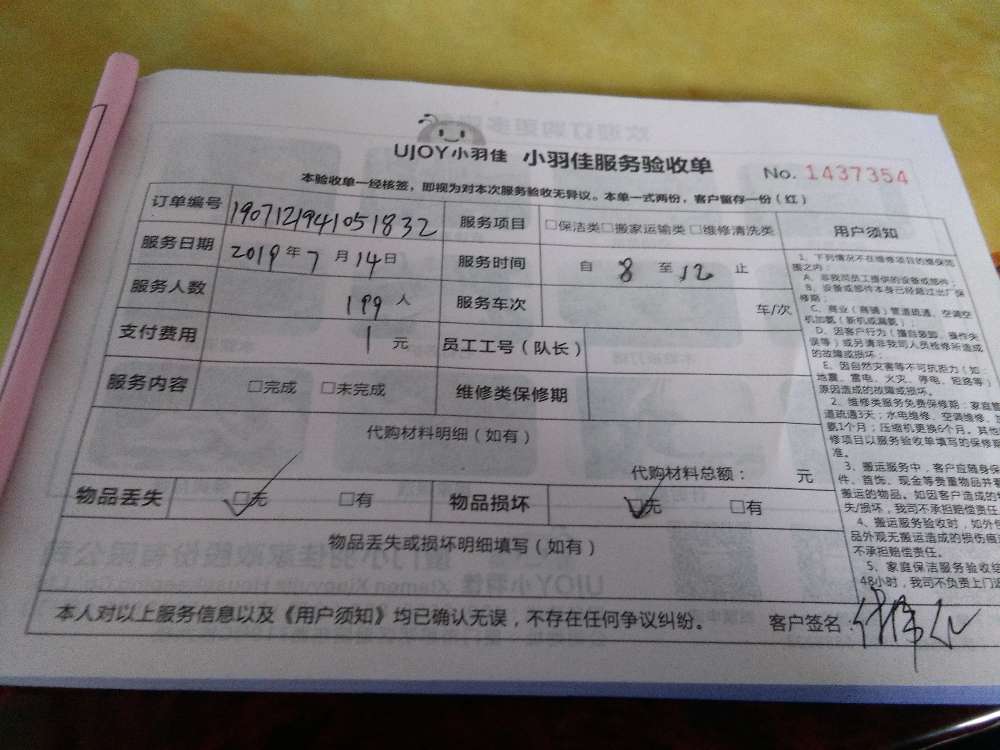 UJOY小羽佳 小羽佳服务验收单 No. 1437354
本验收单一经核签，即视为对本次服务验收无异议。本单一式两份，客户留存一份（红）
订单编号 1907121941051832 服务项目 □保洁类□搬家运输类□维修清洗类 用户须知
服务日期 2019年7月14日 服务时间 自 8 至 12 止
服务人数 199 人 服务车次 车/次
支付费用 1 元 员工工号（队长）
服务内容 □完成 □未完成 维修类保修期
代购材料明细（如有）
代购材料总额： 元
物品丢失 □无 □有 物品损坏 □无 □有
物品丢失或损坏明细填写（如有）
本人对以上服务信息以及《用户须知》均已确认无误，不存在任何争议纠纷。 客户签名：
1、下列情况不在维修项目的维保范
围之内：
A、非我司员工提供的设备或部件；
B、设备或部件本身已经超过出厂保
修期；
C、商业（商铺）管道疏通、空调空
机加氨（新机或漏氨）；
D、因客户行为（擅自装卸、操作失
误等）或另请非我司人员检修所造成
的故障或损坏；
E、因自然灾害等不可抗拒力（如
地震、雷电、火灾、停电、短路等）
原因造成的故障或损坏。
2、维修类服务免费保修期：家庭管
道疏通3天；水电维修、空调维修、加
氨1个月；压缩机更换6个月。其他
修项目以服务验收单填写的保修期
准。
3、搬运服务中，客户应随身保
件、首饰、现金等贵重物品并看
搬运的物品。如因客户造成的物
失/损坏，我司不承担赔偿责任
4、搬运服务验收时，如外包
品外观无搬运造成的损伤痕迹
不承担赔偿责任。
5、家庭保洁服务验收结
48小时，我司不负责上门